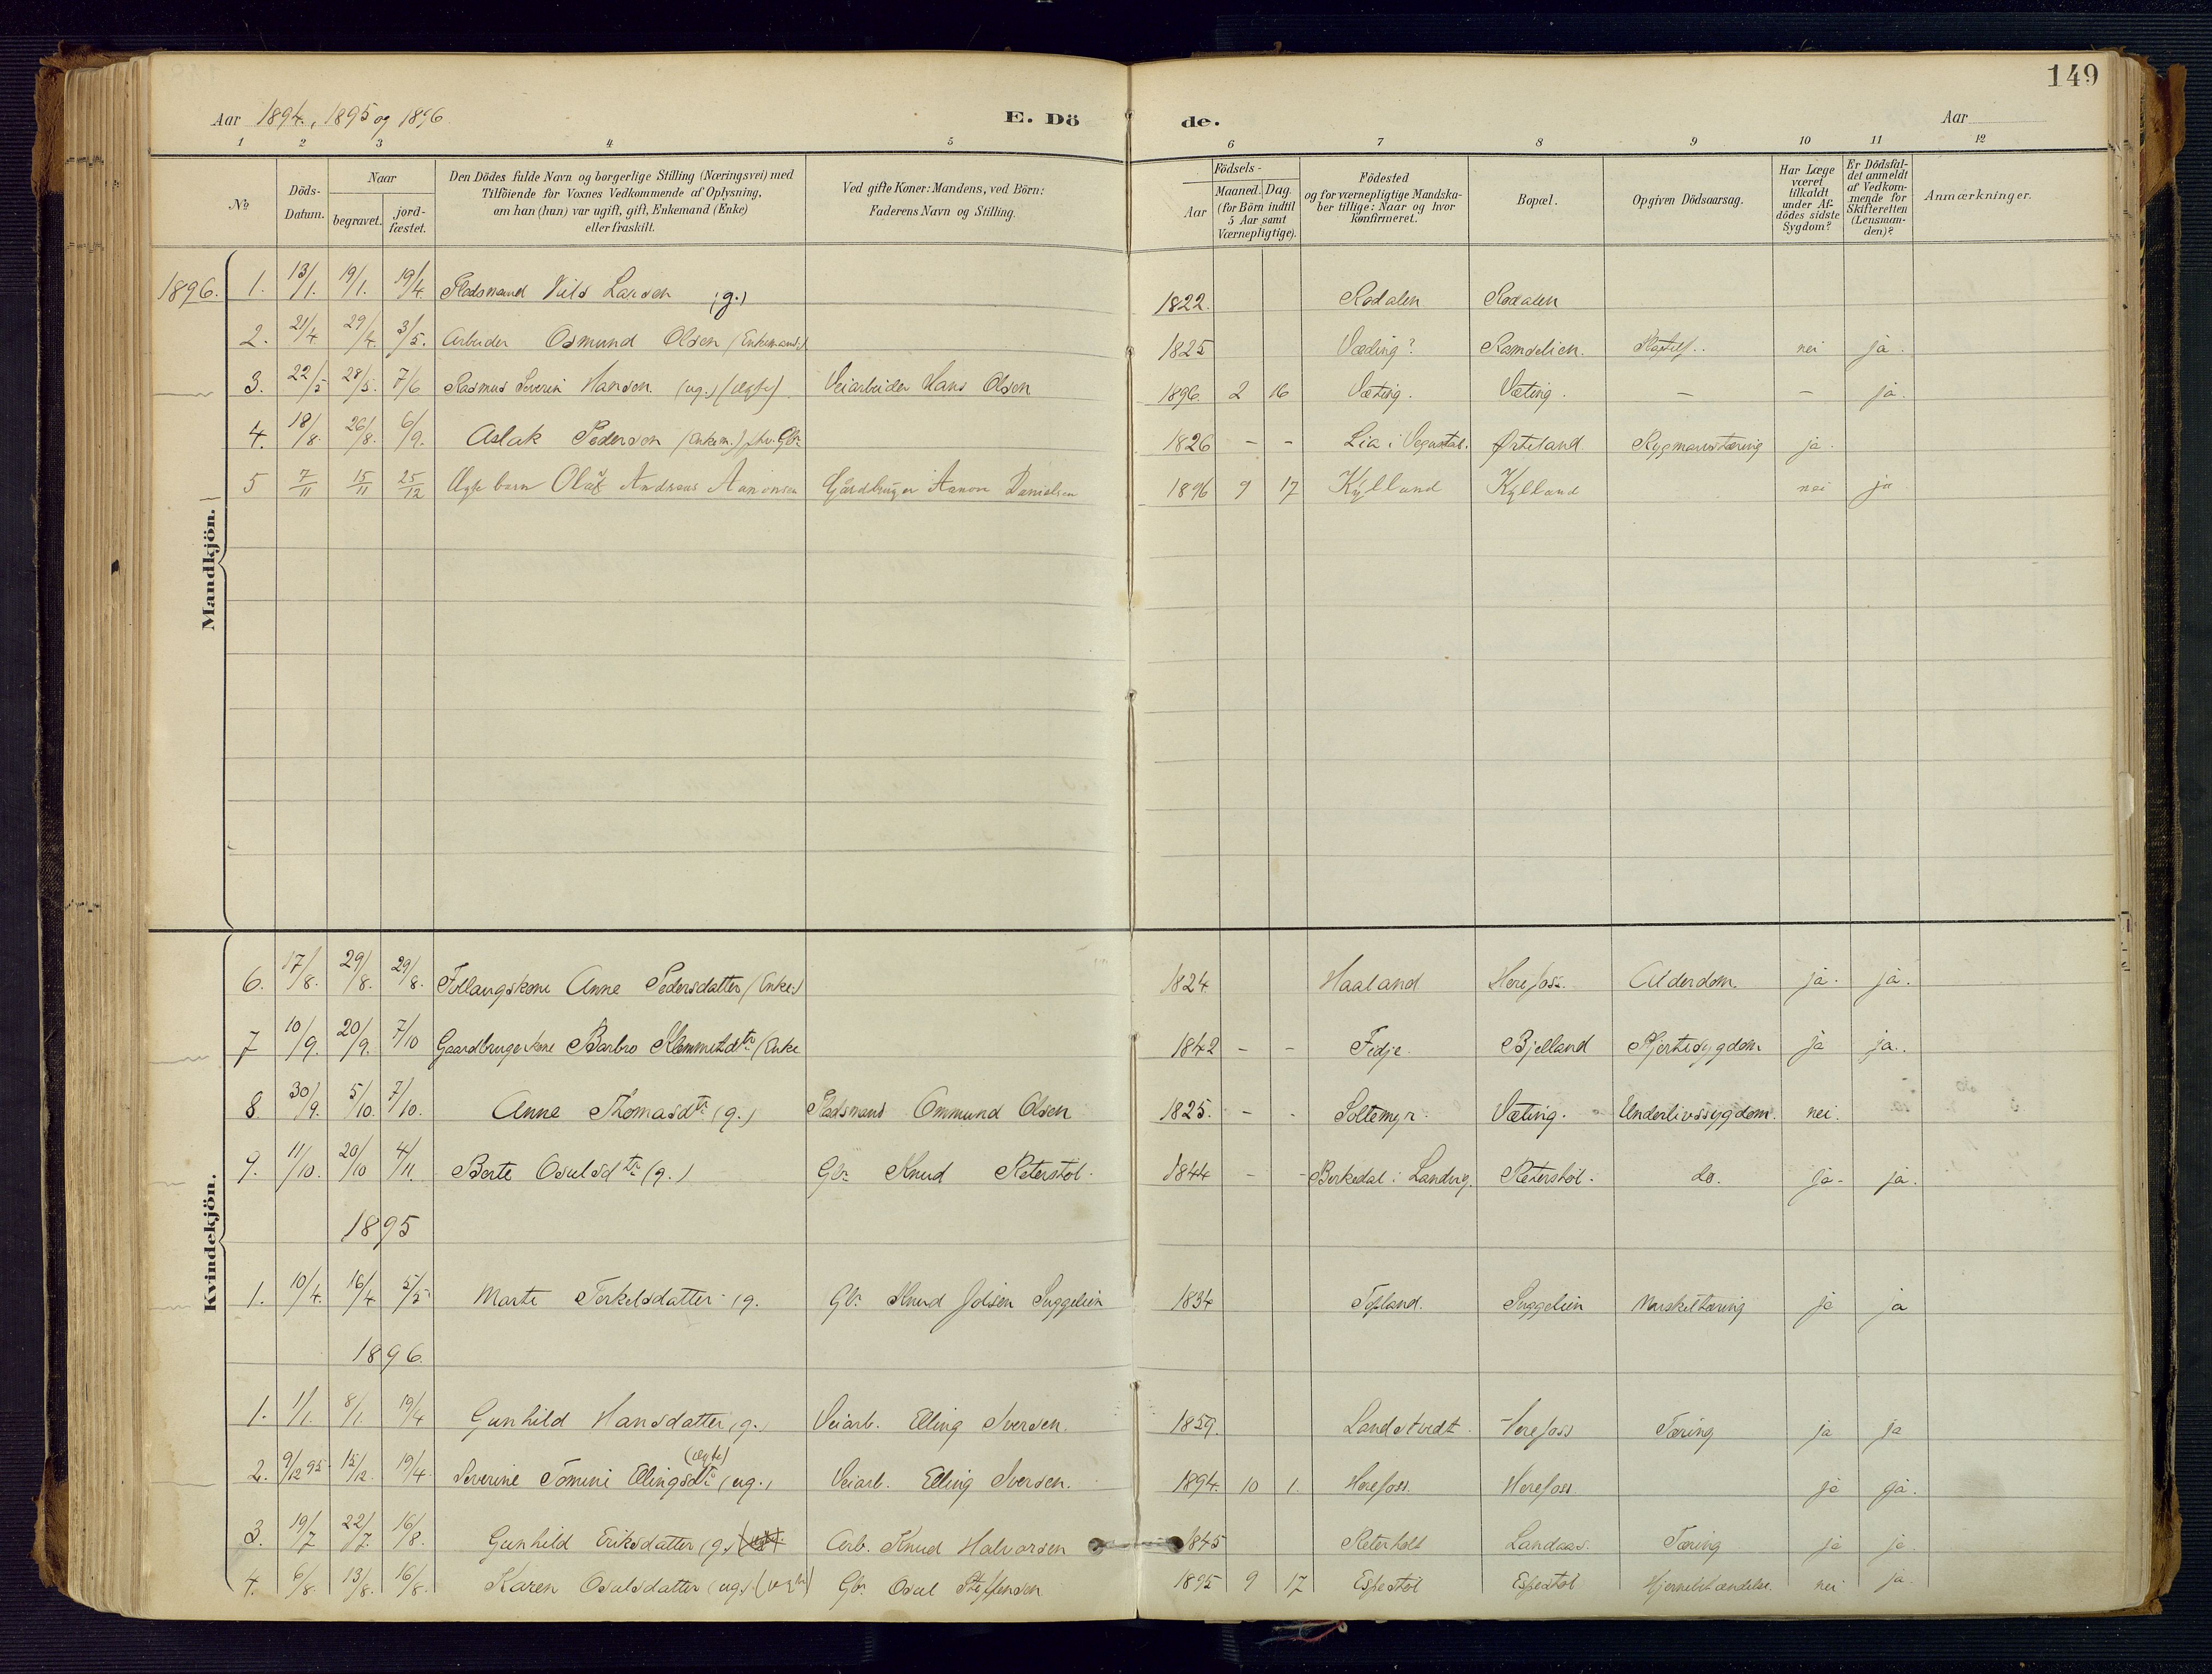 149
Aar 1894, 1895 og 1896
E. Dö de.
Aar
1 2 3 4 5 6 7 8 9 10 11 12
No
Döds-Datum.
Naar
begravet.
jord-fæstet.
Den Dödes fulde Navn og borgerlige Stilling (Næringsvei) med
Tilföiende for Voxnes Vedkommende af Oplysning,
om han (hun) var ugift, gift, Enkemand (Enke)
eller fraskilt.
Ved gifte Koner: Mandens, ved Börn:
Faderens Navn og Stilling.
Födsels-
Aar
Maaned. Dag.
(for Börn indtil
5 Aar samt
Værnepligtige).
Födested
og for værnepligtige Mandska-
ber tillige: Naar og hvor
konfirmeret.
Bopæl.
Opgiven Dödsaarsag.
Har Læge
været
tilkaldt
under Af-
dödes sidste
Sygdom?
Er Dödsfal-
det anmeldt
af Vedkom-
mende for
Skifteretten
(Lensman-
den)?
Anmærkninger.
Mandkjön.
1896. 1. 13/1. 19/1. 19/4. Pladsmand Nils Larsen (g.) 1822. Rodalen Rodalen
2. 21/4 29/4. 3/5. Arbeider Osmund Olsen (Enkemand) 1825 Væding? Ramselien. nei ja.
3. 22/5 28/5. 7/6 Rasmus Severin Hansen (ug.) (ægte) Veiarbeider Hans Olsen 1896. 2 16 Væting. Væting. — — ja.
4. 18/8. 26/8. 6/9. Aslak Pederson (enkem.) fhv. Gbr. 1826 - - Lia i Vegusdal. Ørteland Rygmarvstæring ja.
5 7/11 15/11 25/12 Ægte barn Olaf Andreas Aanonsen Gårdbruger Aanon Danielsen 1896 9 17 Kylland Kylland nei ja
Kvindekjön.
6. 17/8. 29/8. 29/8. Follaugskone Anne Pedersdatter (Enke) 1824. Haaland Herefoss. Alderdom. ja. ja.
7 10/9. 20/9. 7/10 Gaardbrugerkone Barbro Klemmetsdtr. (Enke 1842 - - Fidje. Bjelland Hjertesygdom ja ja.
8 30/9. 5/10. 7/10. Anne Thomasdtr. (g.) Pladsmand Ommund Olsen 1825. - - Soltemyr. Væting. Underlivssygdom. nei.
9. 11/10. 20/10 4/11. Berte Osulsdtr. (g.) Gbr. Knud Retterstöl. 1844 - - Birkedal i Landvig. Retterstöl. do. ja. ja.
1895
1. 10/4. 16/4. 5/5 Marte Terkelsdatter (g. Gbr. Knud Jolsen Suggelien 1834 Topland. Suggelien Marskeltæring ja ja
1896.
1. 1/1. 8/1. 19/4 Gunhild Hansdatter (g.) Veiarb. Elling Iversen. 1859. Landstvedt. Herefoss Tæring ja ja
2. 9/12 95 15/12. 19/4. Severine Tomine Ellingsdtr. (ug.) (ægte) Veiarb. Elling Iversen. 1894. 10 1. Herefoss. Herefoss. ja ja.
3. 19/7 22/7. 16/8. Gunhild Eriksdatter (g.) Arb. Knud Halvorsen 1845 Landaas. Tæring ja ja.
4. 6/8. 13/8. 16/8. Karen Osulsdatter (ug.) (ægte) Gbr. Osul Steffensen 1895 9 17 Espestöl Espestöl Hjernebetændelse. nei ja.